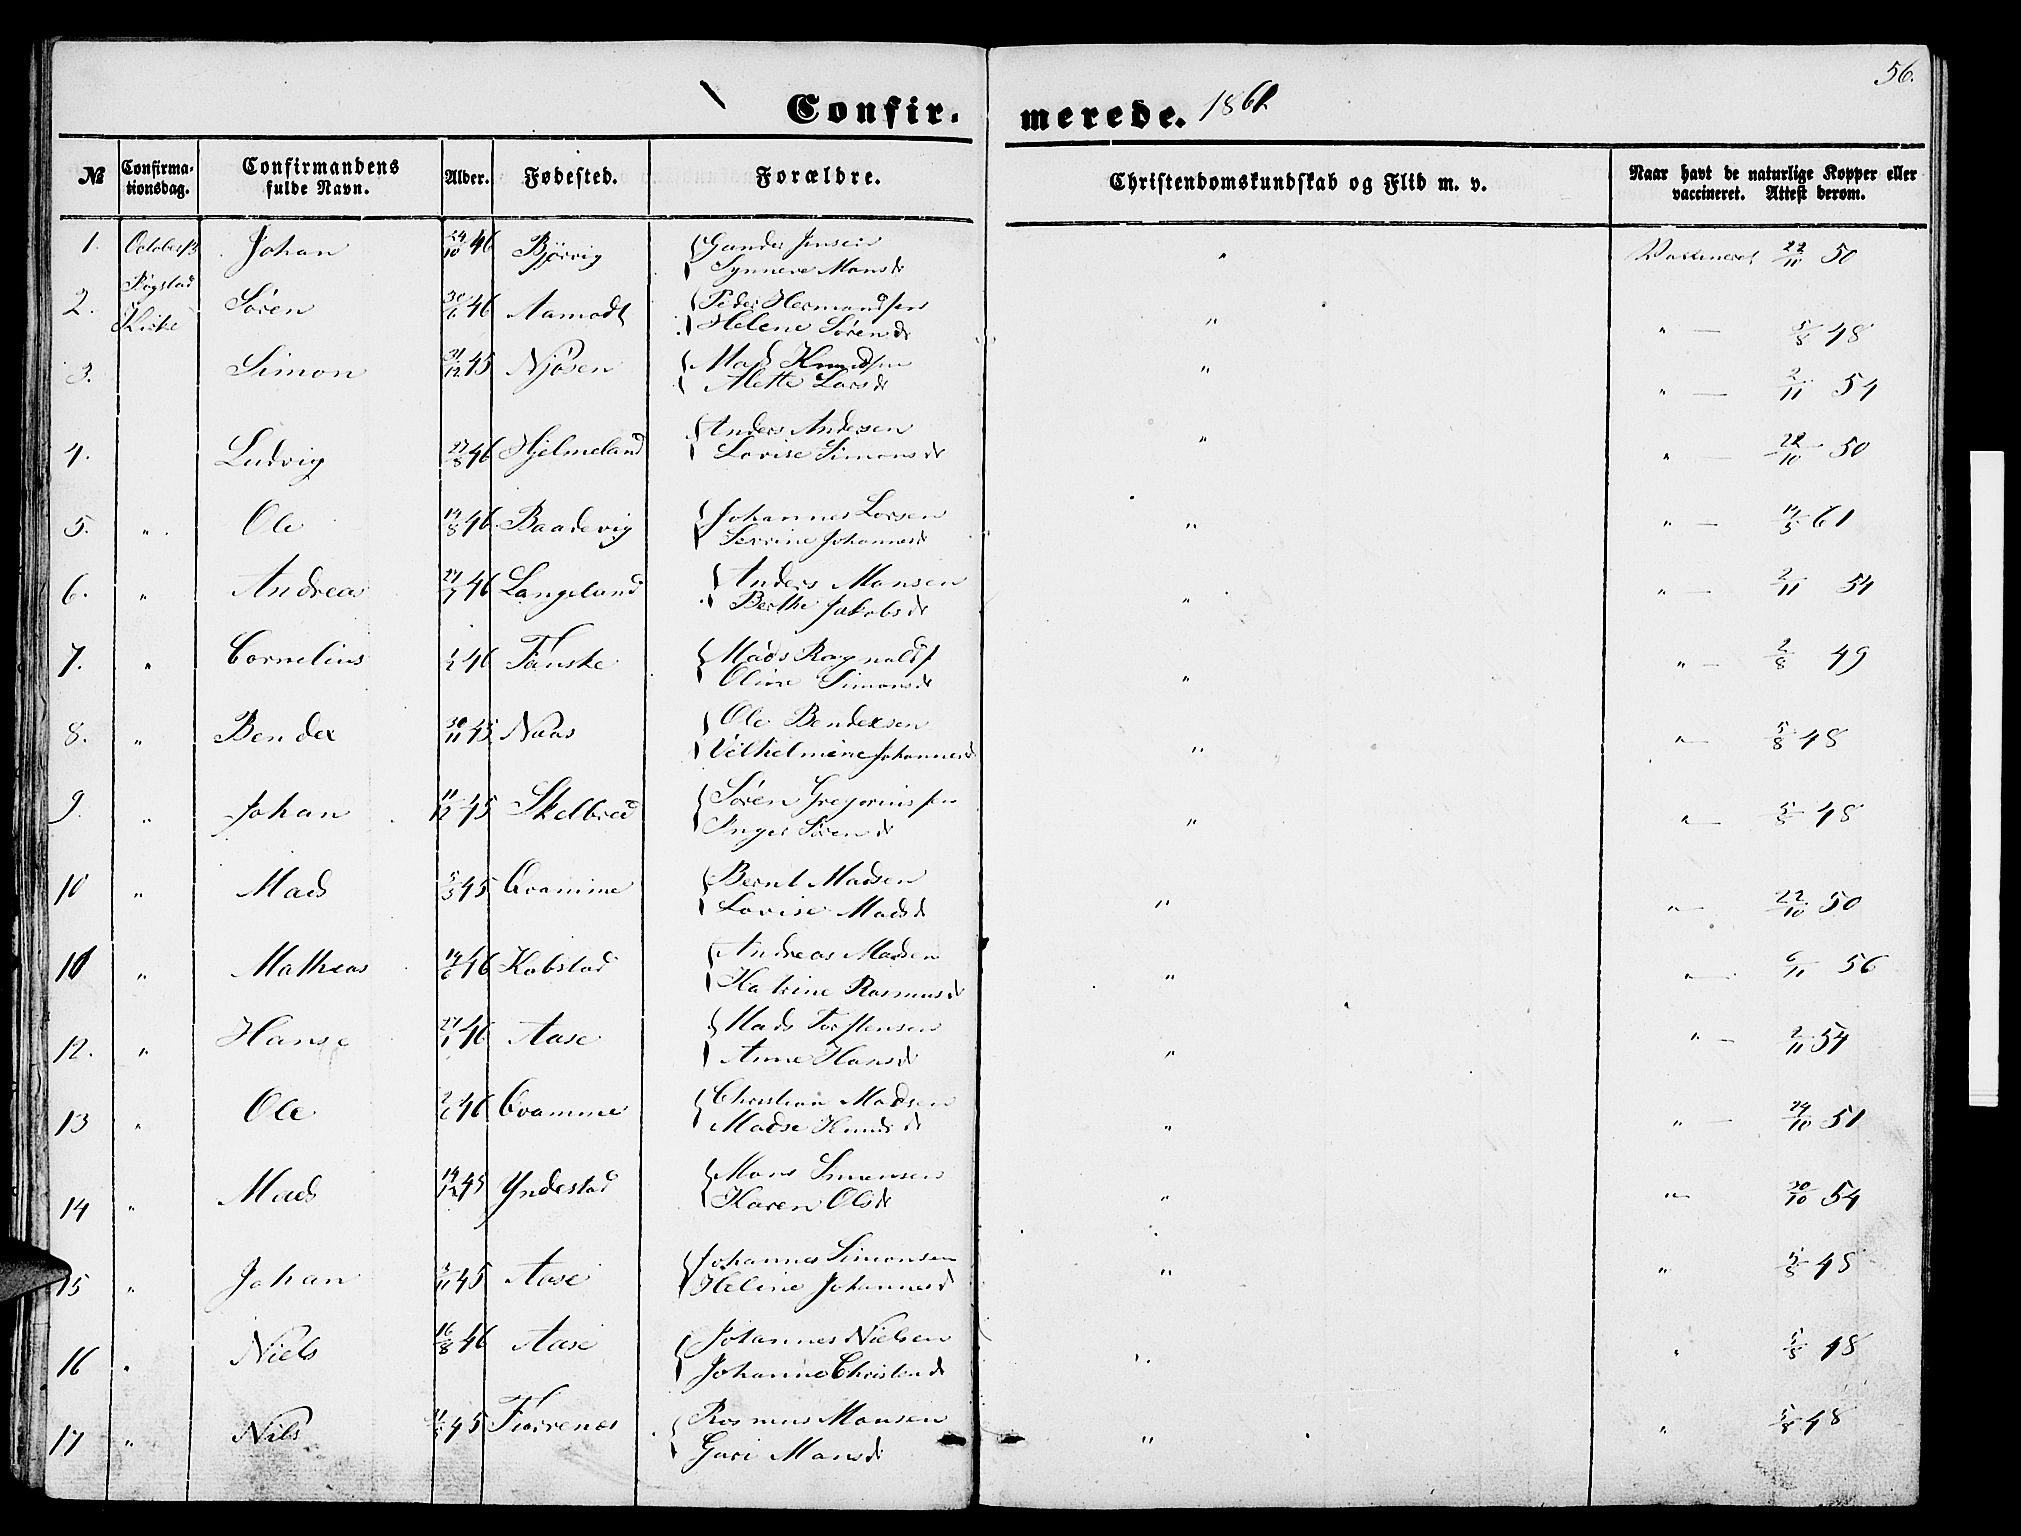 56.
Confir- merede. 1861
№ Confirma-tionsdag. Confirmandens fulde Navn. Alder. Fødested. Forældre. Christendomskundskab og Flid m. v. Naar havt de naturlige Kopper eller vaccineret. Attest derom.
1. October Johan 46 Bjørvig Synneve Monsdr " Vaccineret 22/11 50
Kirke
2. Søren 46 Aamodt Peder Hermandsen Helene Sørensdr " " — 5/8 48
3. Simon 31/12 45 Njøsen Mads Knudsen Mette Larsdr " " — 2/11 54
4. Ludvig 27/8 46 Hjelmeland Anders Andersen Lovise Simonsdr " " — 22/10 50
5. " Ole 19/8 46 Baadevig Johannes Larsen Serine Johannesdr " " — 61
6. " Andreas 46 Langeland Anders Monsen Berthe Jakobsdr " " — 2/11 54
7. " Cornelius 46 Fanske Mads Ragnalds Oline Simonsdr " " — 2/8 49
8. " Bendex 30/11 45 Naas Ole Bendexsen Vilhelmine Johannesdr " " 5/8 48
9. " Johan 11/12 45 Skelbred Søren Gregoriussen Inger Sørensdr " " 5/8 48
10 " Mads 45 Qvamme Bernt Madsen Lovise Madsdr " " 22/10 50
11 " Mathias 46 Kobstad Andreas Madsen Katrine Rasmusdr " " 6/11 56
12. " Hans 46 Aase Mads Torstensen Anne Hansdr " " — 2/11 54
13 " Ole 46 Qvamme Christian Madsen Madse Knudsdr " " — 29/10 51
14 " Mads 19/12 45 Yndestad Mons Simensen Karen Olsdr " " 30/10 54
15 " Johan 45 Aase Johannes Simonsen Heline Johannesdr " " 5/8 48
16 " Niels 16/8 46 Aase Johannes Nielsen Johanne Christensdr " " 5/8 48
17 " Nils 45 Rasmus Monsen Guri Monsdr " " 5/8 48